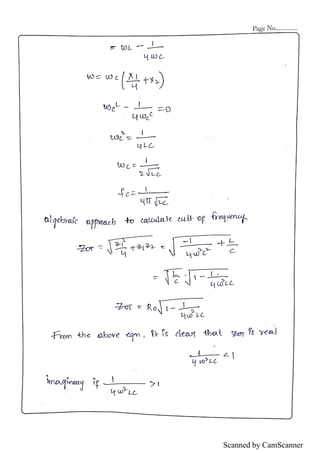 Page No.............
= ωL - 1/4ωC
ω = ωc (X1/4 + X2)
ωcL - 1/4ωcC = 0
ωc² = 1/4LC
ωc = 1/2√LC
fc = 1/4π√LC
algebraic approach to calculate cutt of frequency.
ZOT = √(Z1²/4 + Z1Z2) = √(-1/4ω²C² + L/C)
= √(L/C) · √(1 - 1/4ω²LC)
ZOT = R0 √(1 - 1/4ω²LC)
From the above eqn, It is clear that ZOT is real
1/4ω²LC < 1
Imaginary if 1/4ω²LC > 1
Scanned by CamScanner